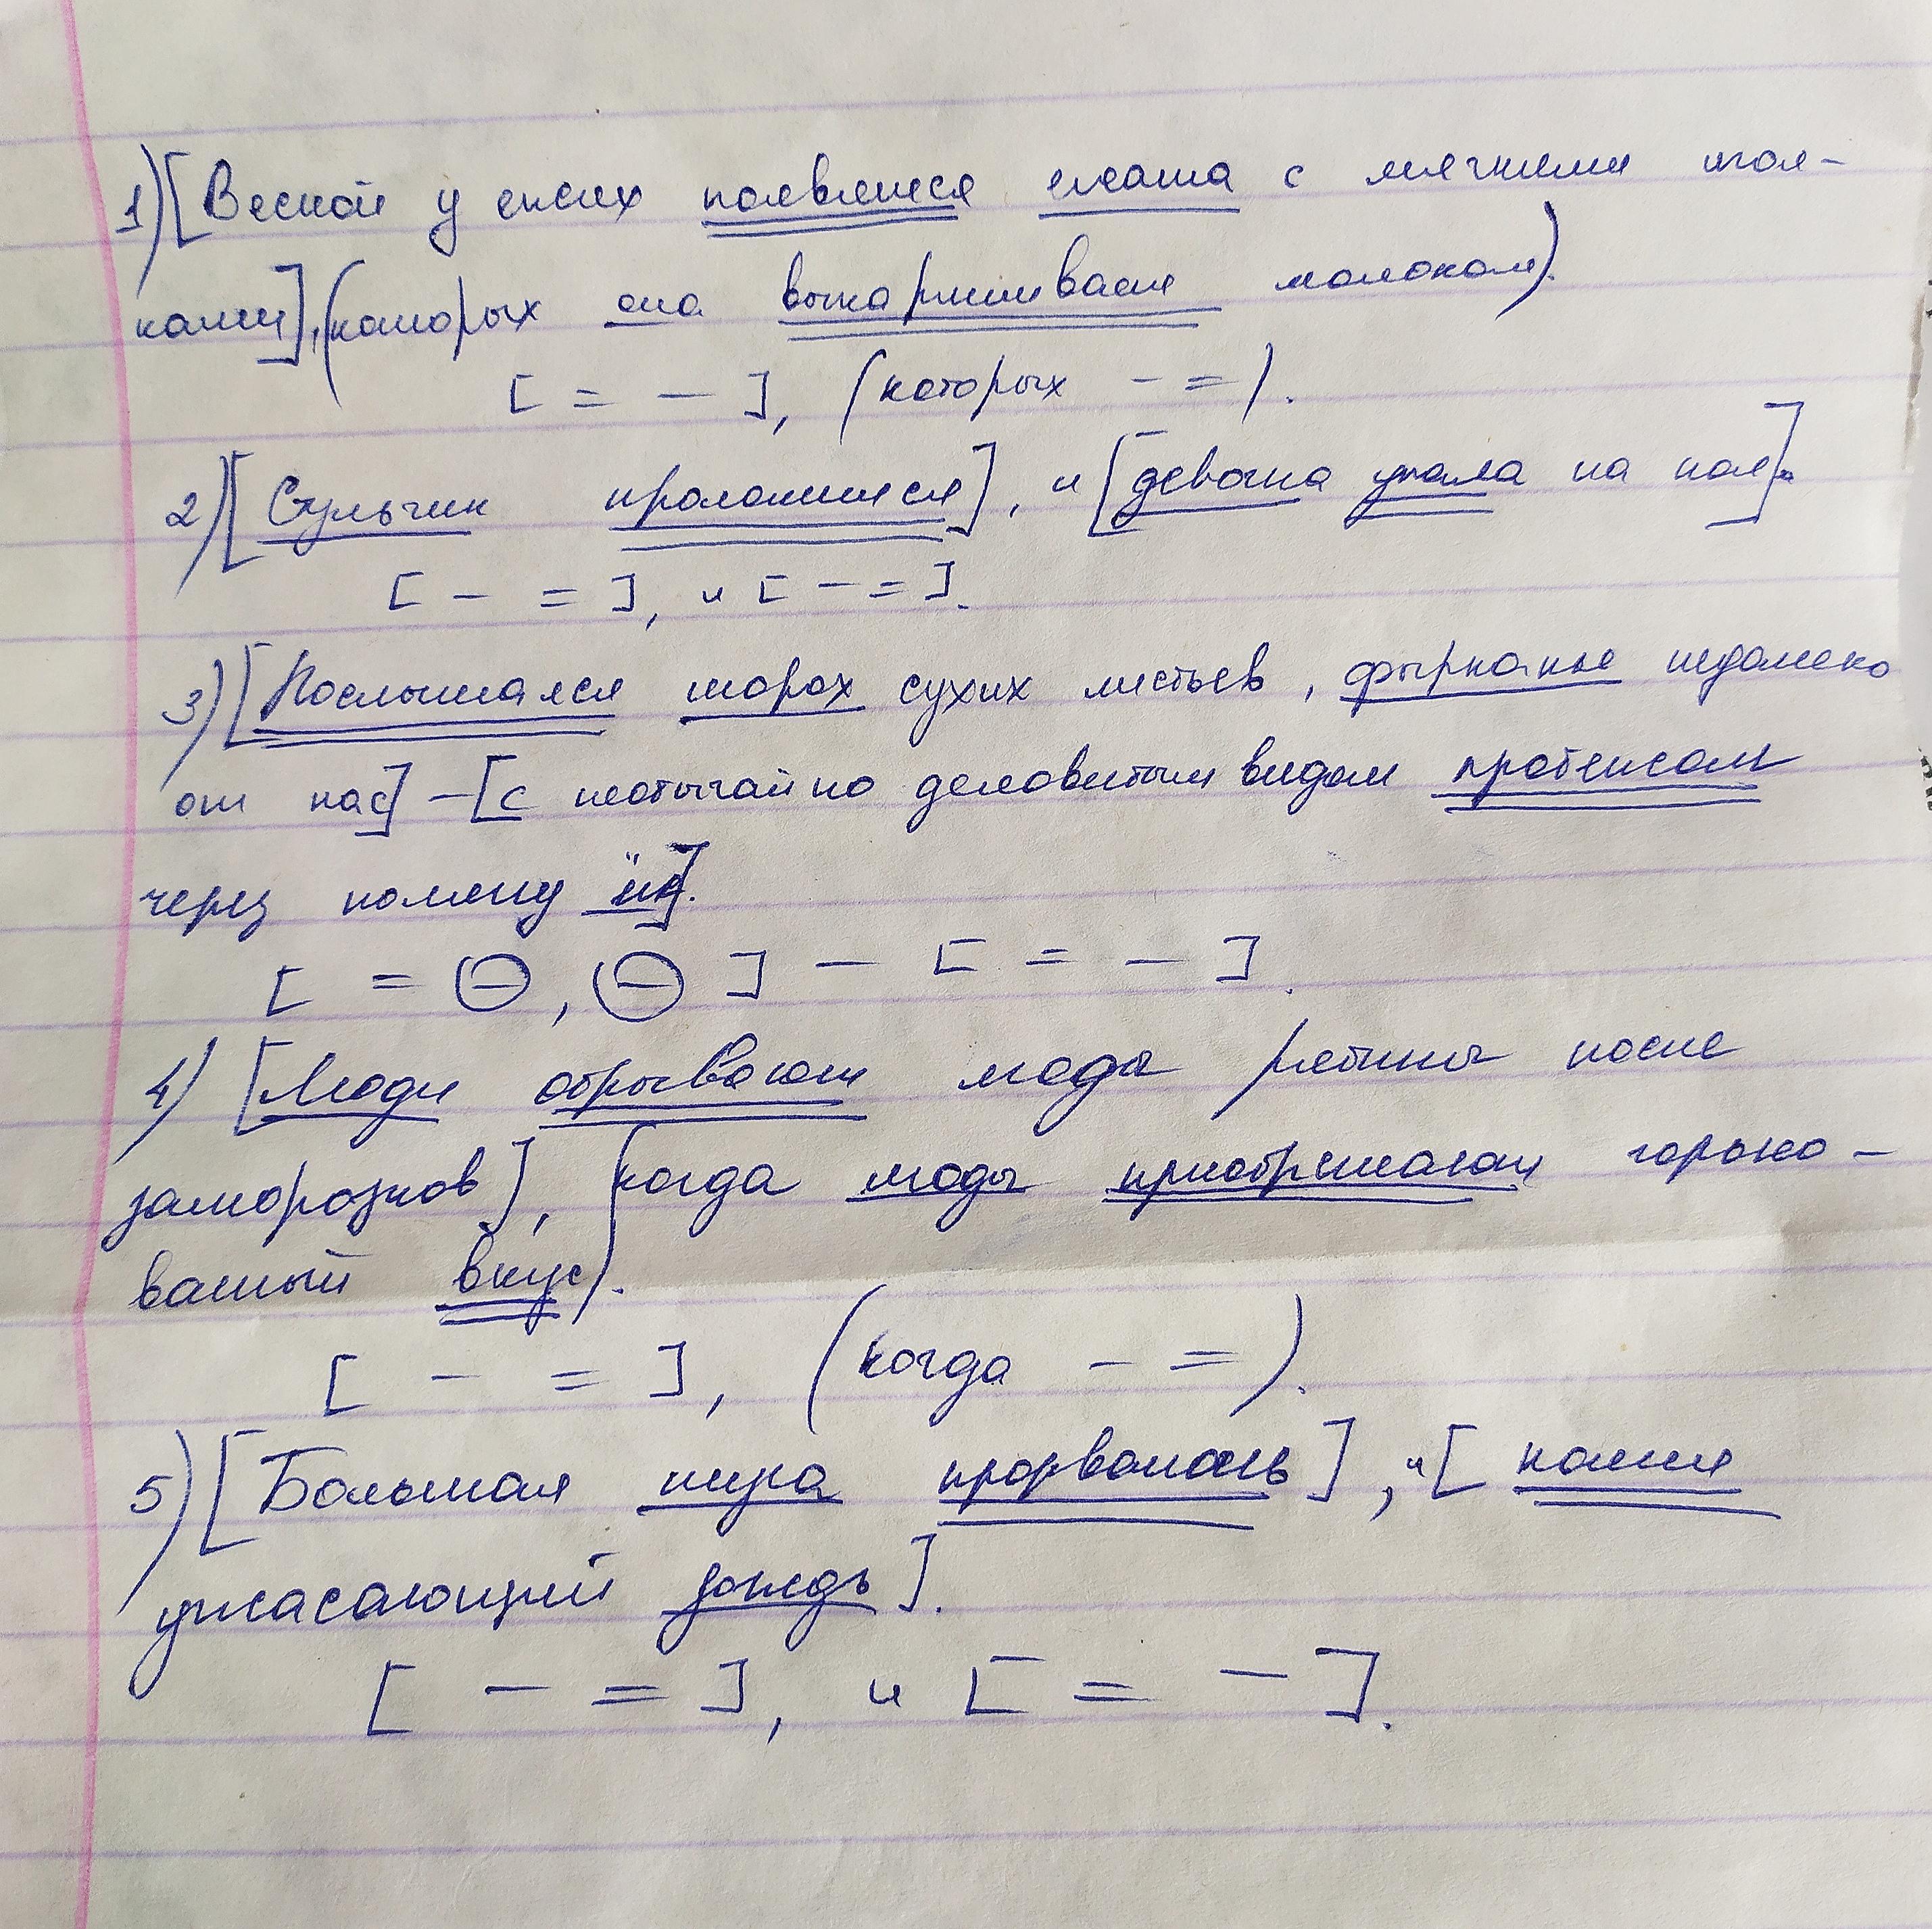 1) [Весной у ежих появляются ежата с мягкими игол-
ками], (которых она выкармливает молоком).
[ = – ], (которых – =).
2) [Стульчик проломился], и [девочка упала на пол].
[ – = ], и [ – = ].
3) [Послышался шорох сухих листьев, фырканье недалеко
от нас] – [с необычайно деловитым видом пробежал
через поляну ёж].
[ = ⊖, ⊖ ] – [ = – ].
4) [Люди обрывают плоды рябины после
заморозков], (когда плоды приобретают горько-
ватый вкус).
[ – = ], (когда – =).
5) [Большая туча прорвалась], и [полил
ужасающий дождь].
[ – = ], и [ = – ].